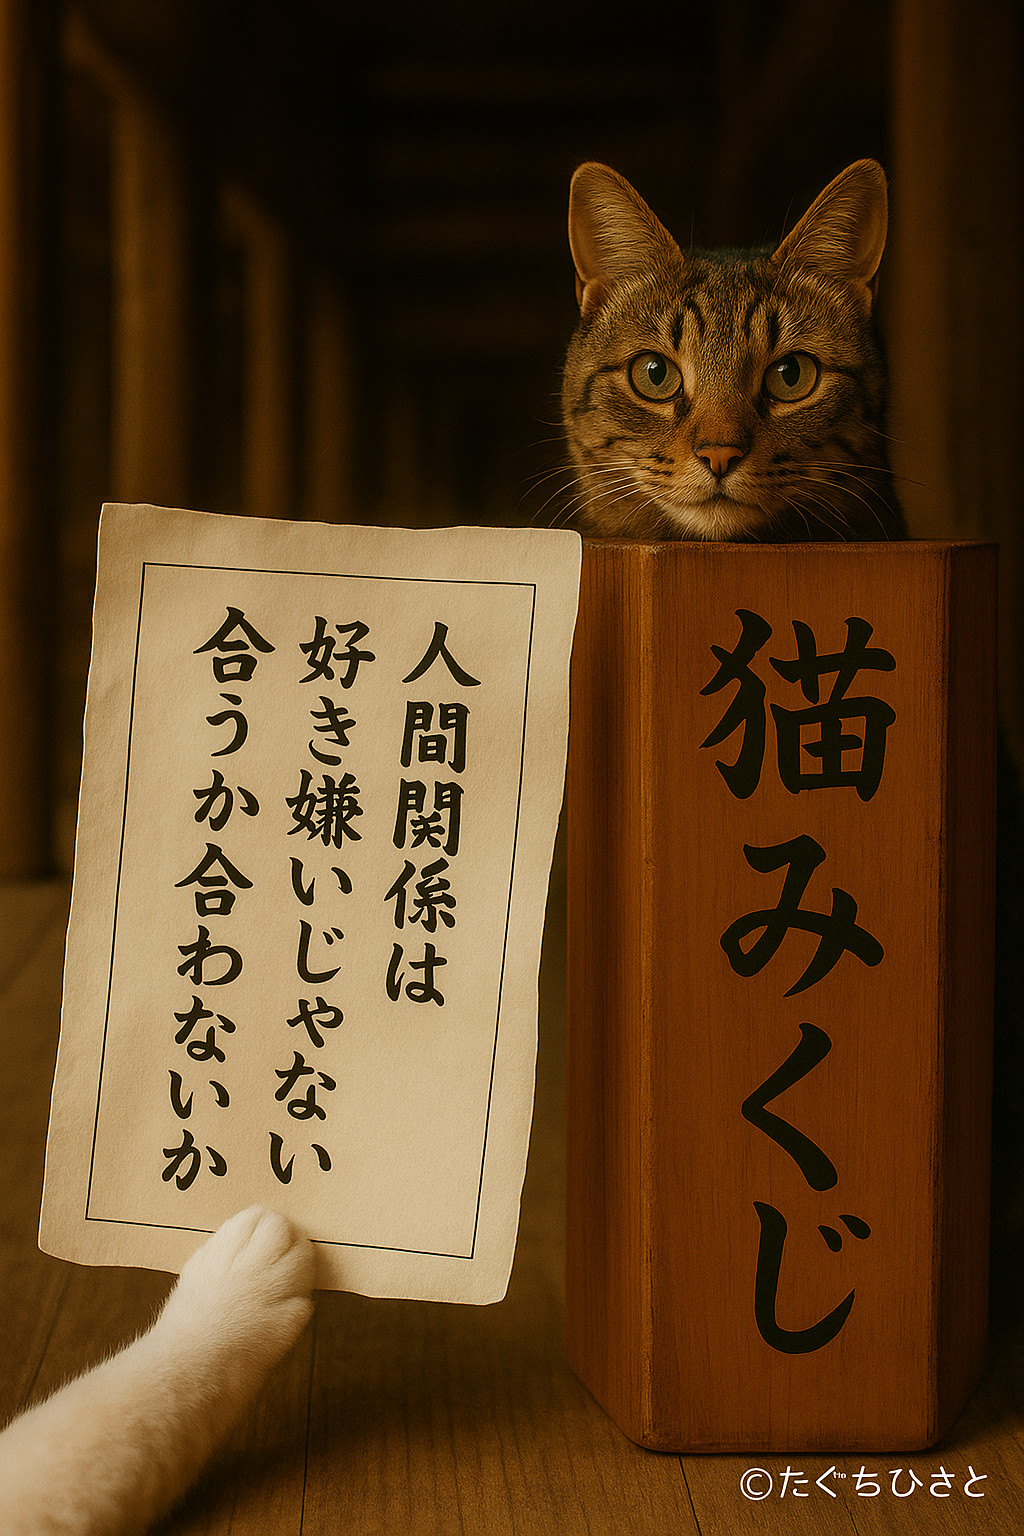 人間関係は
好き嫌いじゃない
合うか合わないか
猫みくじ
©たぐちひさと